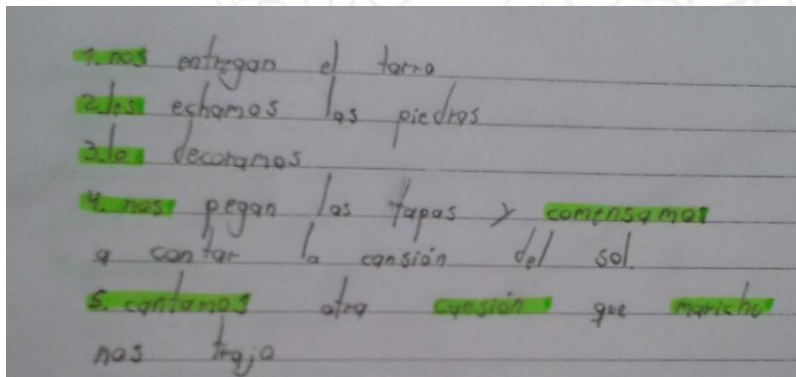 1. nos entregan el tarro
2. les echamos las piedras
3. lo decoramos
4. nos pegan las tapas y comensamos
a contar la cansión del sol.
5. cantamos otra cansión que marichu
nos trajo